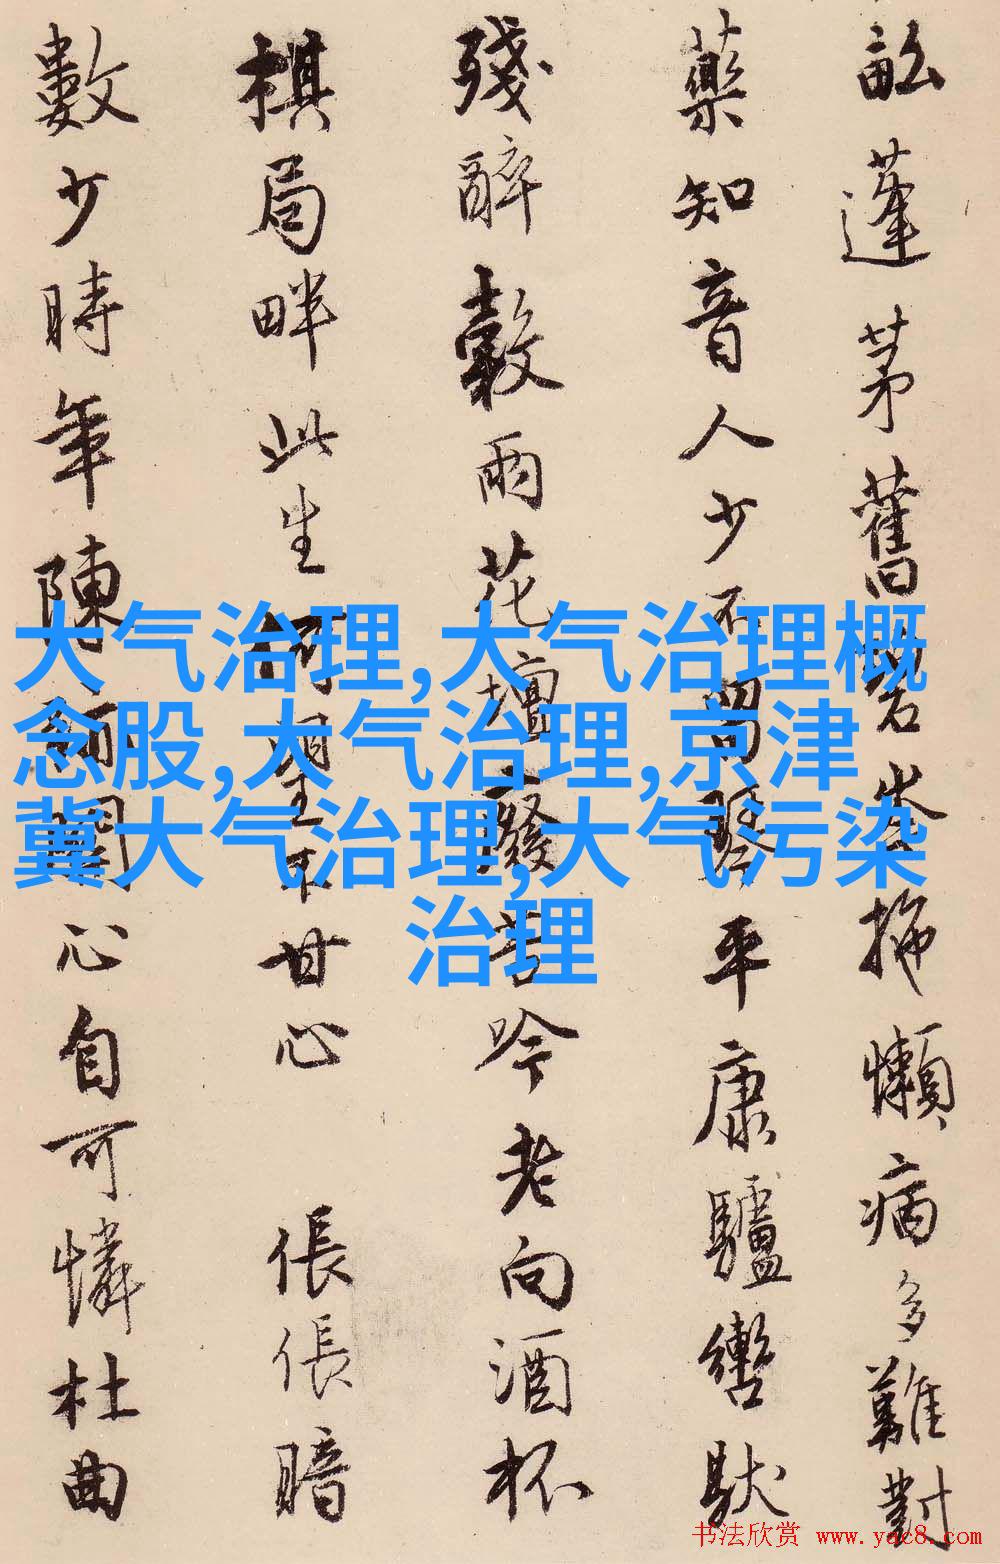 畝蓬茅舊拖懶病多難對
藥知音人少不留琴平康驢轡馱
殘醉穀雨花壇苦吟老向酒杯
棋局畔此生何望不甘心 倀倀暗
數少時年陳心自可憐杜曲
大气治理,大气治理概
念股,大气治理,京津
冀大气治理,大气污染
治理
书法欣赏 www.yac8.com